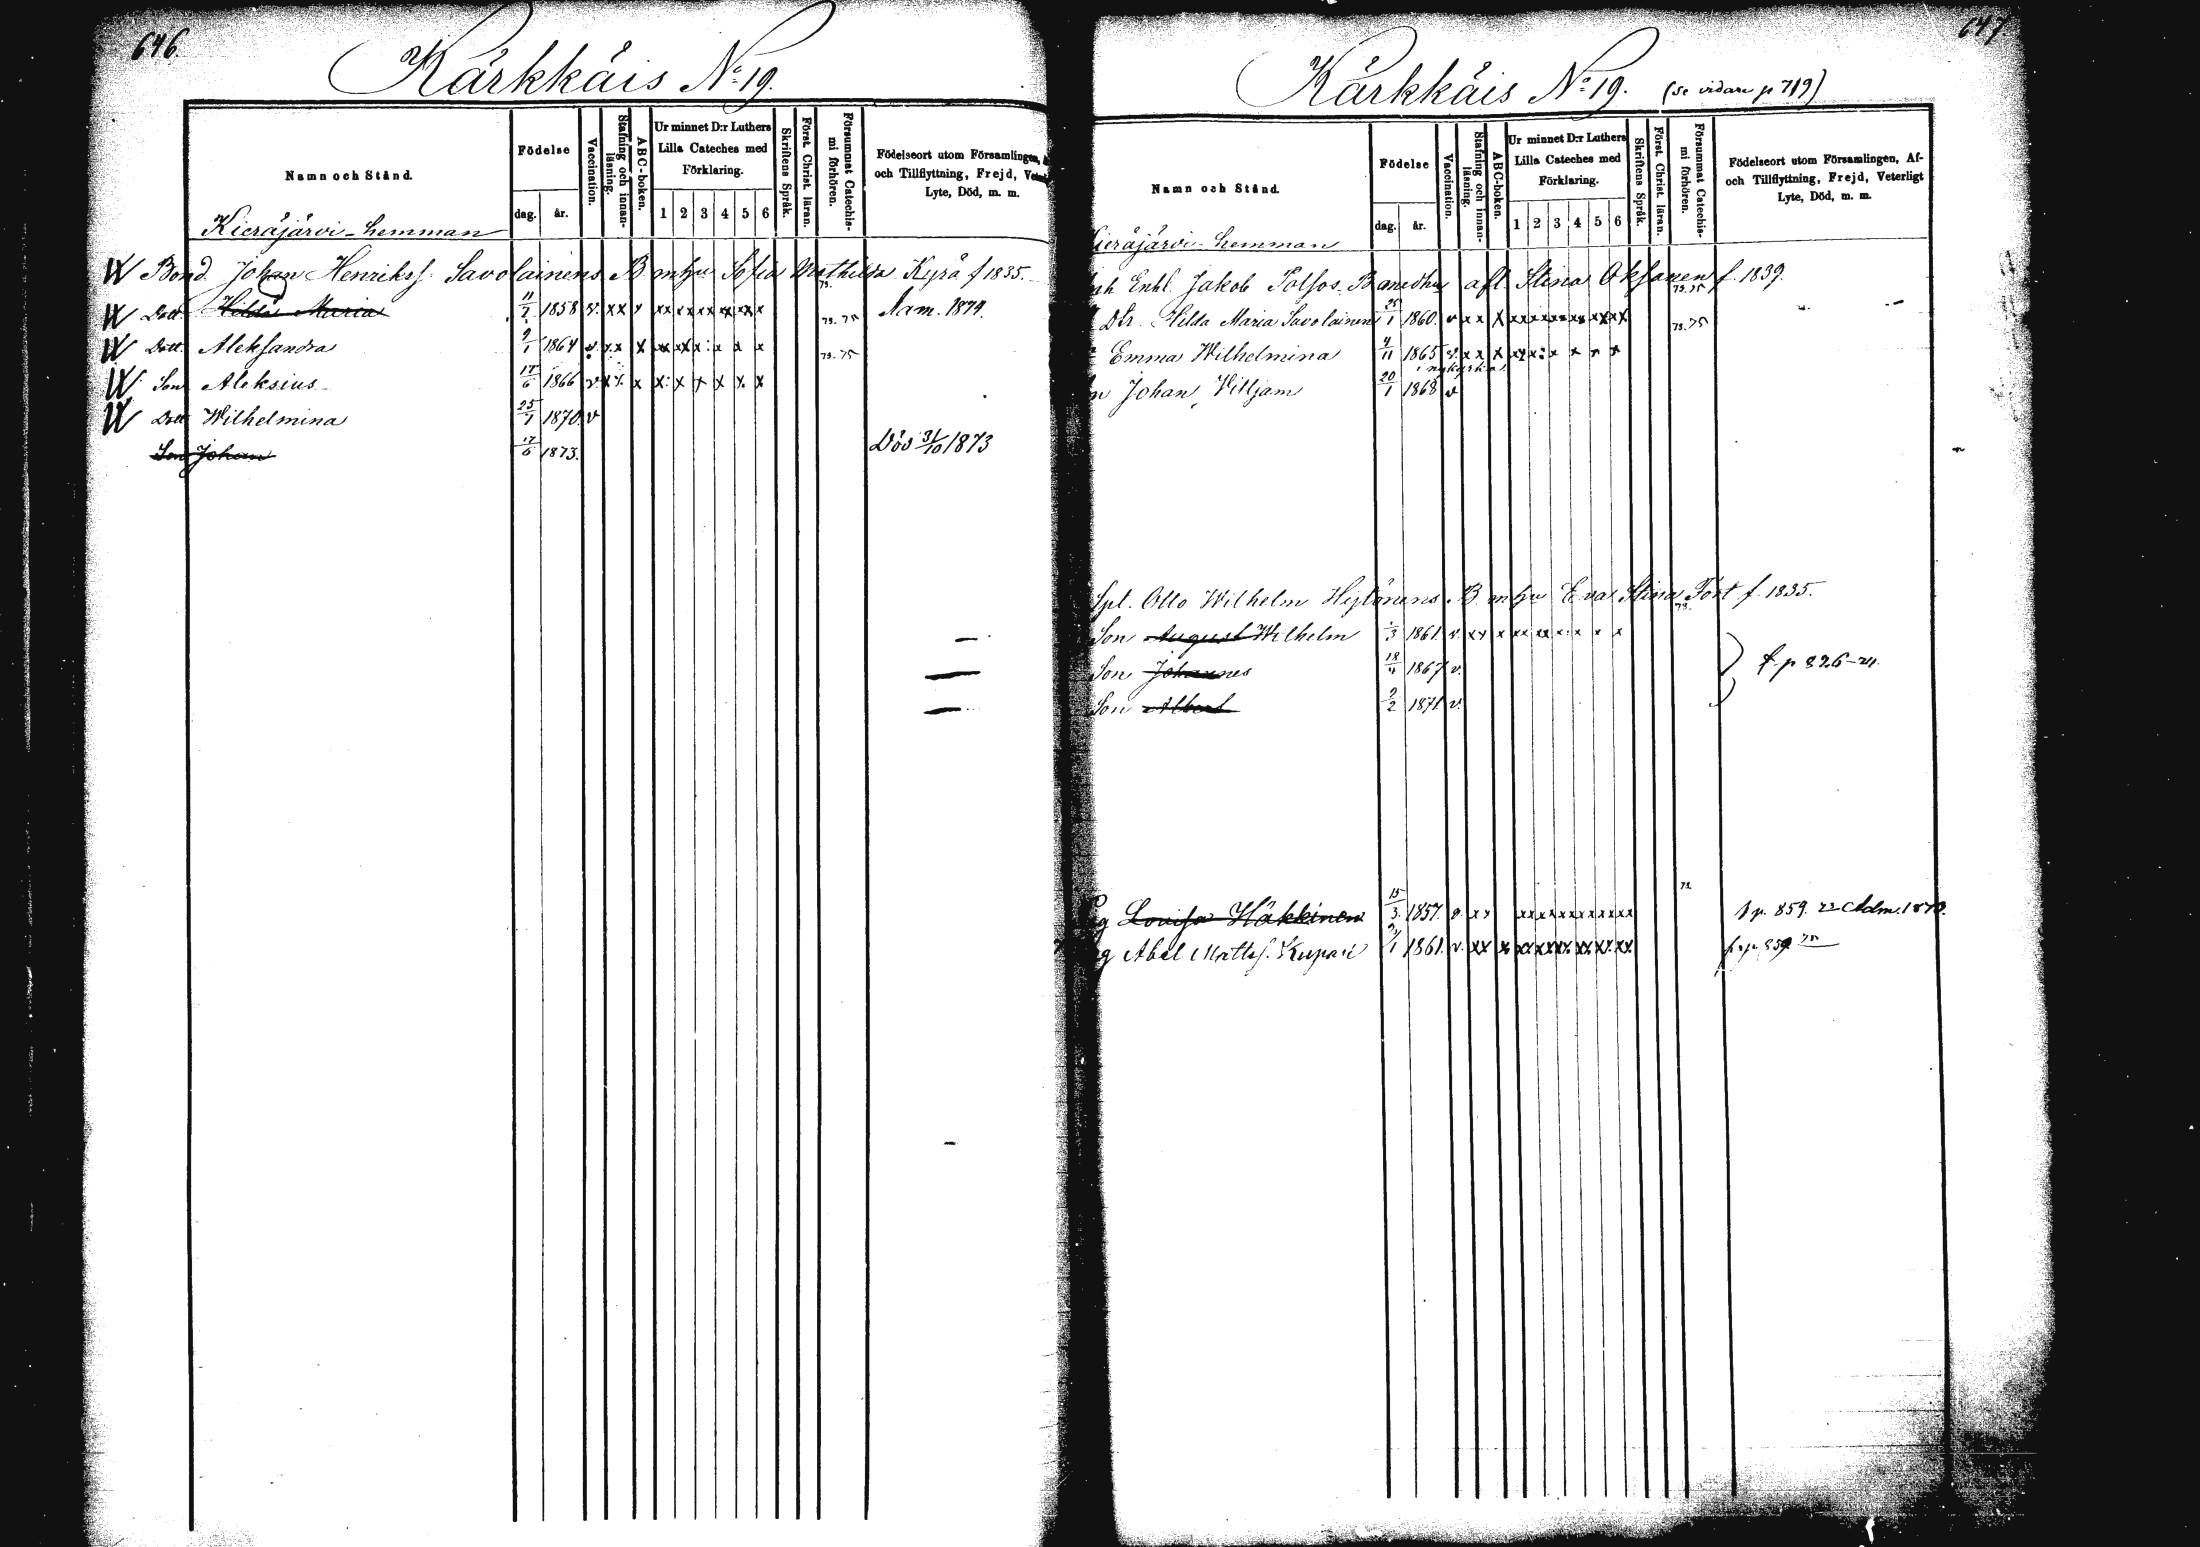 646.
Kärkkäis No 19.
Namn och Stånd.
Födelse
dag. år.
Vaccination.
Stafning och innan-läsning.
ABC-boken.
Ur minnet D:r Luthers
Lilla Cateches med
Förklaring.
1 2 3 4 5 6
Skriftens Språk.
Först. Christ. läran.
Försummat Catechis-mi förhören.
Födelseort utom Församlingen,
och Tillflyttning, Frejd,
Lyte, Död, m. m.
Kieräjärvi-hemman
Bond. Johan Henrikss. Savolainens B m hu Sofia Mathilda Kyrä f 1835.
Dott. Hilda Maria 11/7 1858 v. xx x xx xx xx xx xx x 73. 75 Nam. 1874.
Dott. Aleksandra 9/1 1864 v. xx x xx xx x: x x x 73. 75
Son Aleksius 17/6 1866 v x x. x x: x x x x. x
Dott Wilhelmina 25/1 1870. v
Son Johan 17/6 1873. Död 31/10 1873
647.
Kärkkäis No 19. (se vidare p 719)
Namn och Stånd.
Födelse
dag. år.
Vaccination.
Stafning och innan-läsning.
ABC-boken.
Ur minnet D:r Luthers
Lilla Cateches med
Förklaring.
1 2 3 4 5 6
Skriftens Språk.
Först. Christ. läran.
Försummat Catechis-mi förhören.
Födelseort utom Församlingen, Af-
och Tillflyttning, Frejd, Veterligt
Lyte, Död, m. m.
Kieräjärvi-hemman
Enkl. Jakob Polsos B afl. Stina Oksanen f. 1839.
Dtr. Hilda Maria Savolainen 25/1 1860. v x x x xx xx xx xx xx xx 73. 75
Emma Wilhelmina 4/11 1865 v. x x x xx x: x x x x
Johan Villjam 20/1 1868 v
Spl. Otto Wilhelm Hytönens B m hu Eva Stina Tört f. 1835.
Son August Wilhelm 1/3 1861. v. xx x xx xx x: x x x
Son Johannes 18/4 1867 v. f. p 826
Son Albert 9/2 1871. v.
Lovisa Häkkinen 15/3 1857. v. xx xx xx xx xx xx xx 73. p. 859. Adm. 1873.
Abel Matts. Kupari 1861. v. xx x xx xx xx xx xx xx p. 859 75